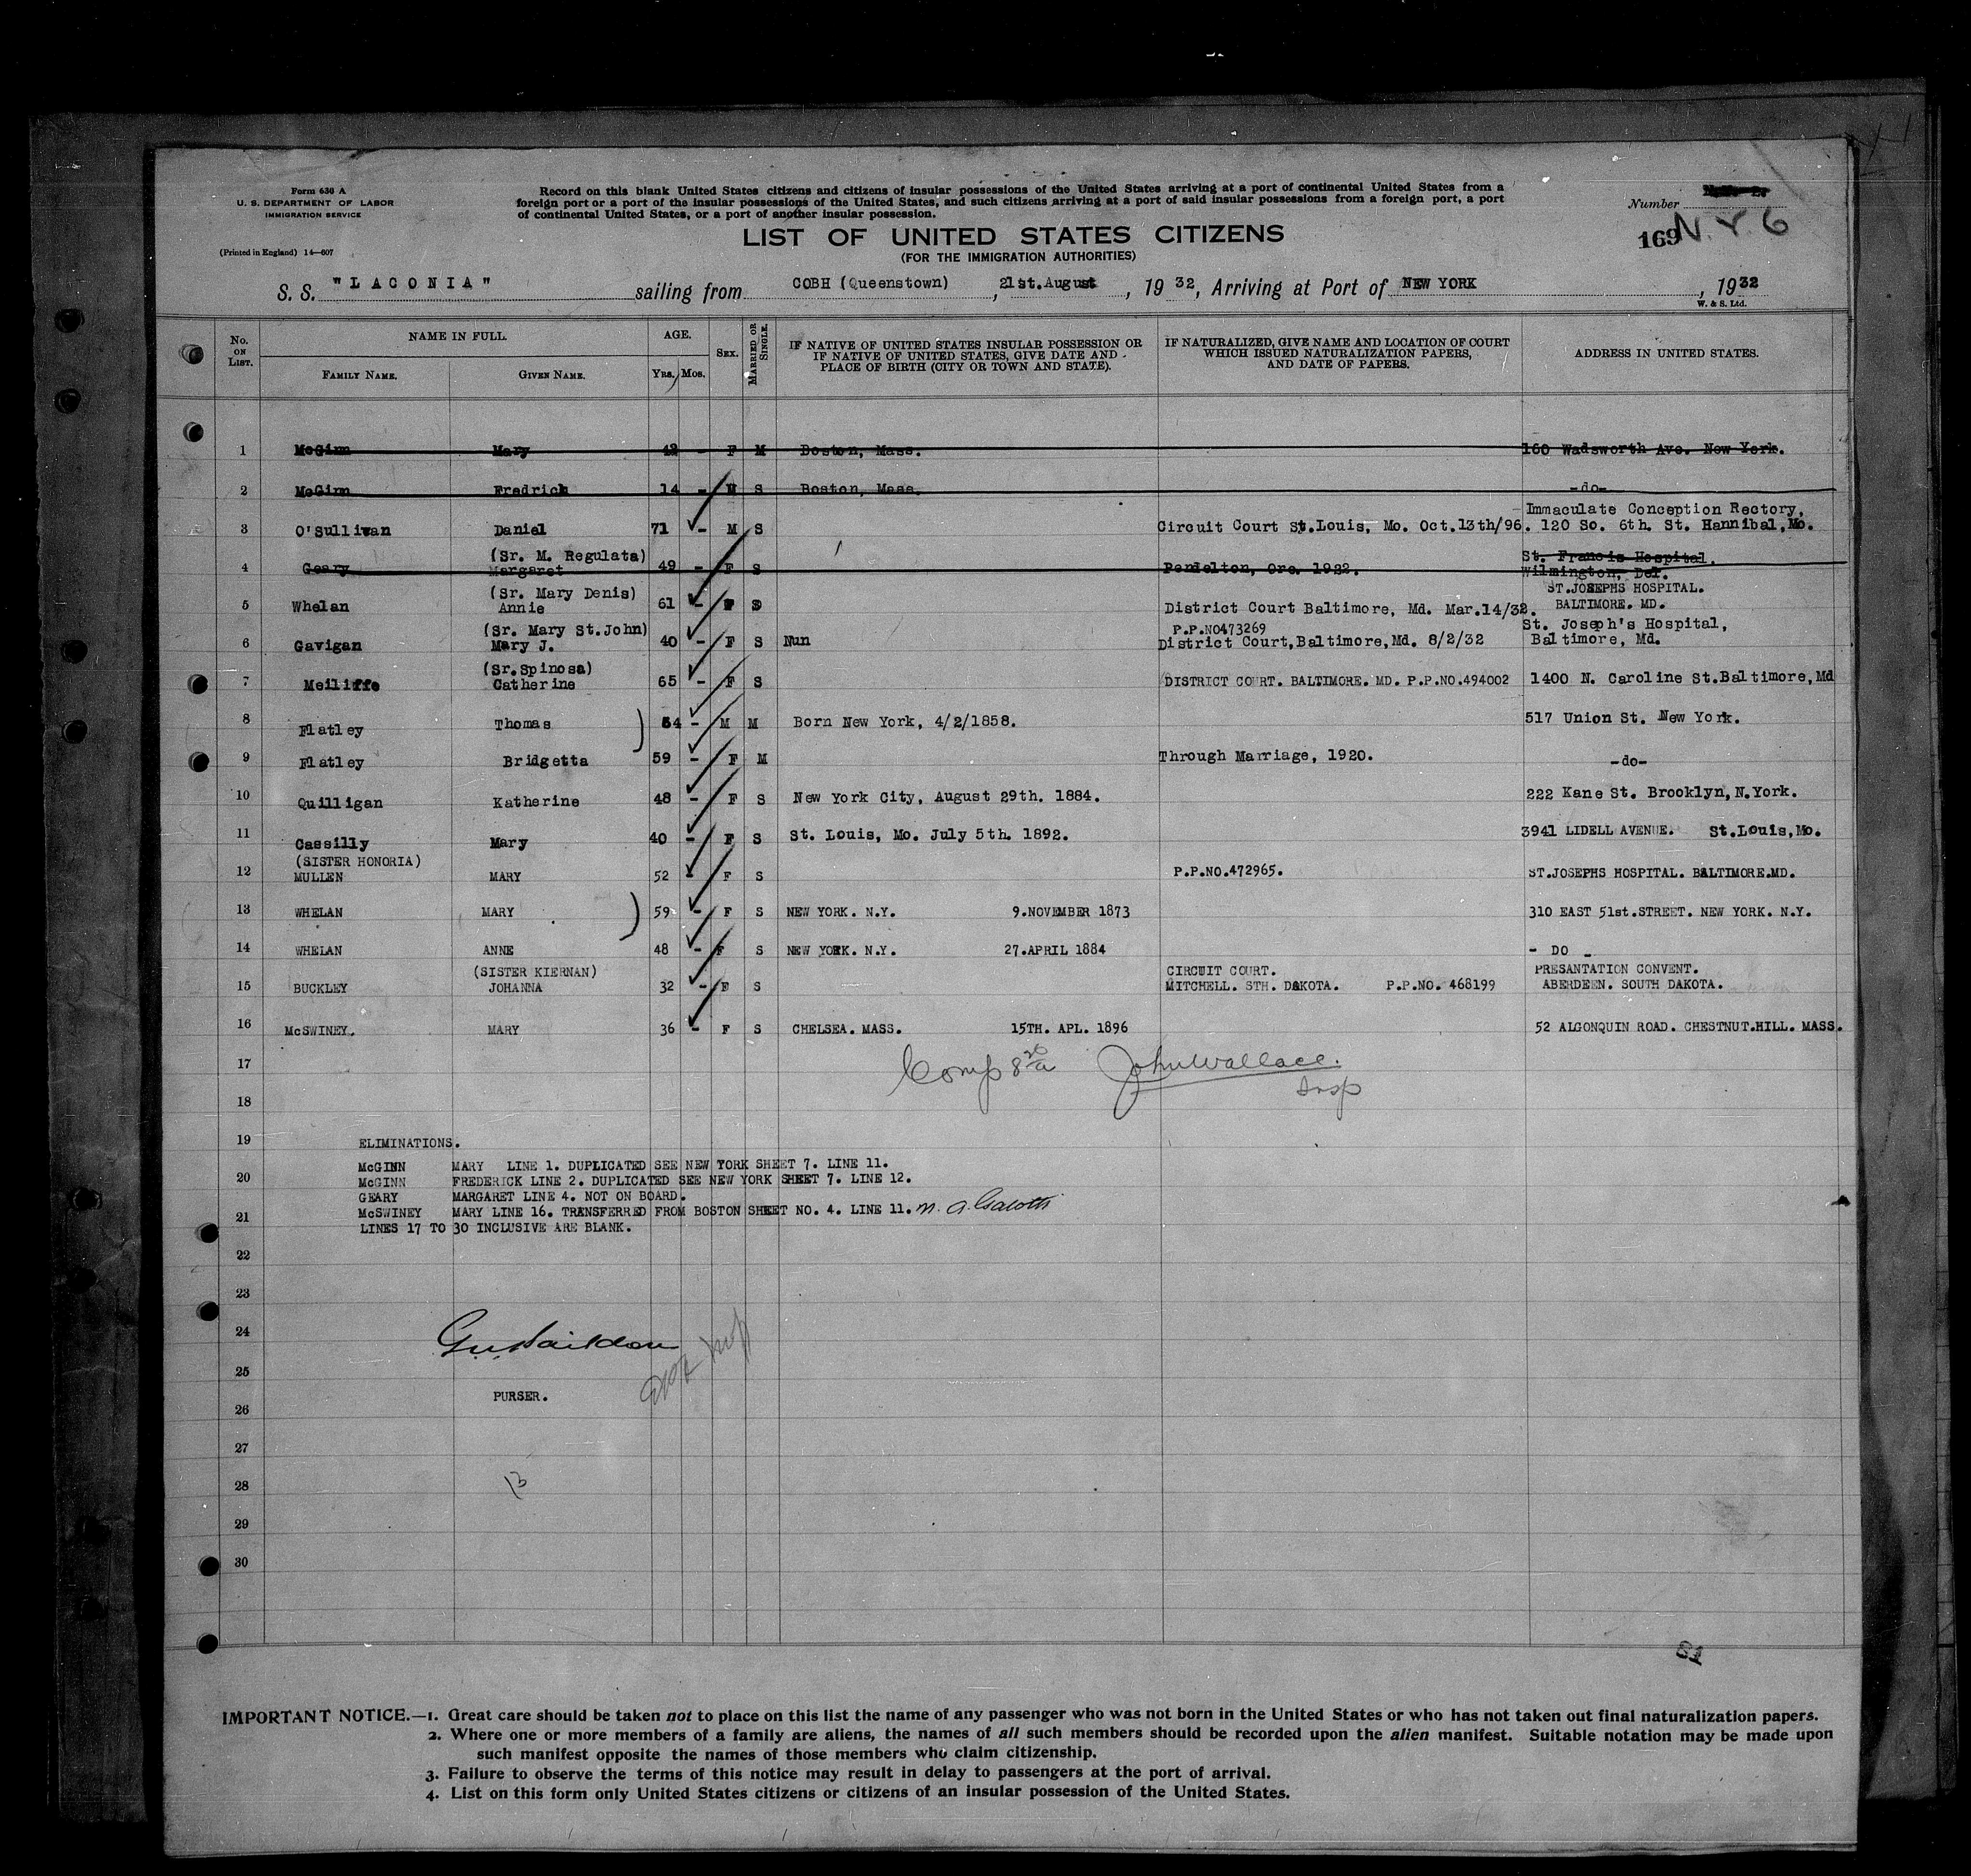 Form 630 A
U. S. DEPARTMENT OF LABOR
IMMIGRATION SERVICE
(Printed in England) 14—607
Record on this blank United States citizens and citizens of insular possessions of the United States arriving at a port of continental United States from a
foreign port or a port of the insular possessions of the United States, and such citizens arriving at a port of said insular possessions from a foreign port, a port
of continental United States, or a port of another insular possession.
Number
169 N. Y 6
LIST OF UNITED STATES CITIZENS
(FOR THE IMMIGRATION AUTHORITIES)
S. S. "LACONIA" sailing from COBH (Queenstown), 21st. August, 19 32, Arriving at Port of NEW YORK, 1932
W. & S. Ltd.
No. ON LIST. NAME IN FULL. FAMILY NAME. GIVEN NAME. AGE. YRS. MOS. SEX. MARRIED OR SINGLE. IF NATIVE OF UNITED STATES INSULAR POSSESSION OR IF NATIVE OF UNITED STATES, GIVE DATE AND PLACE OF BIRTH (CITY OR TOWN AND STATE). IF NATURALIZED, GIVE NAME AND LOCATION OF COURT WHICH ISSUED NATURALIZATION PAPERS, AND DATE OF PAPERS. ADDRESS IN UNITED STATES.
1 McGinn Mary 42 - F M Boston, Mass. 160 Wadsworth Ave. New York.
2 McGinn Fredrich 14 - M S Boston, Mass. -do-
Immaculate Conception Rectory,
3 O'Sullivan Daniel 71 - M S Circuit Court St.Louis, Mo. Oct.13th/96. 120 So. 6th. St. Hannibal, Mo.
(Sr. M. Regulata) St. Francis Hospital.
4 Geary Margaret 49 - F S Pendelton, Ore. 1922. Wilmington, Del.
(Sr. Mary Denis) ST.JOSEPHS HOSPITAL.
5 Whelan Annie 61 - F S District Court Baltimore, Md. Mar.14/32. BALTIMORE. MD.
(Sr. Mary St.John) P.P.NO473269 St. Joseph's Hospital,
6 Gavigan Mary J. 40 - F S Nun District Court,Baltimore,Md. 8/2/32 Baltimore, Md.
(Sr.Spinosa)
7 Meiliffe Catherine 65 - F S DISTRICT COURT. BALTIMORE. MD. P.P.NO.494002 1400 N. Caroline St.Baltimore,Md
8 Flatley Thomas ) 54 - M M Born New York, 4/2/1858. 517 Union St. New York.
9 Flatley Bridgetta 59 - F M Through Marriage, 1920. -do-
10 Quilligan Katherine 48 - F S New York City, August 29th. 1884. 222 Kane St. Brooklyn, N.York.
11 Cassilly Mary 40 - F S St. Louis, Mo. July 5th. 1892. 3941 LIDELL AVENUE. St.Louis,Mo.
(SISTER HONORIA)
12 MULLEN MARY 52 - F S P.P.NO.472965. ST.JOSEPHS HOSPITAL. BALTIMORE.MD.
13 WHELAN MARY ) 59 - F S NEW YORK. N.Y. 9.NOVEMBER 1873 310 EAST 51st.STREET. NEW YORK. N.Y.
14 WHELAN ANNE 48 - F S NEW YORK. N.Y. 27.APRIL 1884 - DO -
(SISTER KIERNAN) CIRCUIT COURT. PRESANTATION CONVENT.
15 BUCKLEY JOHANNA 32 - F S MITCHELL. STH. DAKOTA. P.P.NO. 468199 ABERDEEN. SOUTH DAKOTA.
16 McSWINEY. MARY 36 - F S CHELSEA. MASS. 15TH. APL. 1896 52 ALGONQUIN ROAD. CHESTNUT.HILL. MASS.
17 Comp John Wallace.
Insp
18
19 ELIMINATIONS.
McGINN MARY LINE 1. DUPLICATED SEE NEW YORK SHEET 7. LINE 11.
20 McGINN FREDERICK LINE 2. DUPLICATED SEE NEW YORK SHEET 7. LINE 12.
GEARY MARGARET LINE 4. NOT ON BOARD.
21 McSWINEY MARY LINE 16. TRANSFERRED FROM BOSTON SHEET NO. 4. LINE 11.
LINES 17 TO 30 INCLUSIVE ARE BLANK.
22
23
24
25
PURSER.
26
27
28
13
29
30
81
IMPORTANT NOTICE.—1. Great care should be taken not to place on this list the name of any passenger who was not born in the United States or who has not taken out final naturalization papers.
2. Where one or more members of a family are aliens, the names of all such members should be recorded upon the alien manifest. Suitable notation may be made upon
such manifest opposite the names of those members who claim citizenship.
3. Failure to observe the terms of this notice may result in delay to passengers at the port of arrival.
4. List on this form only United States citizens or citizens of an insular possession of the United States.